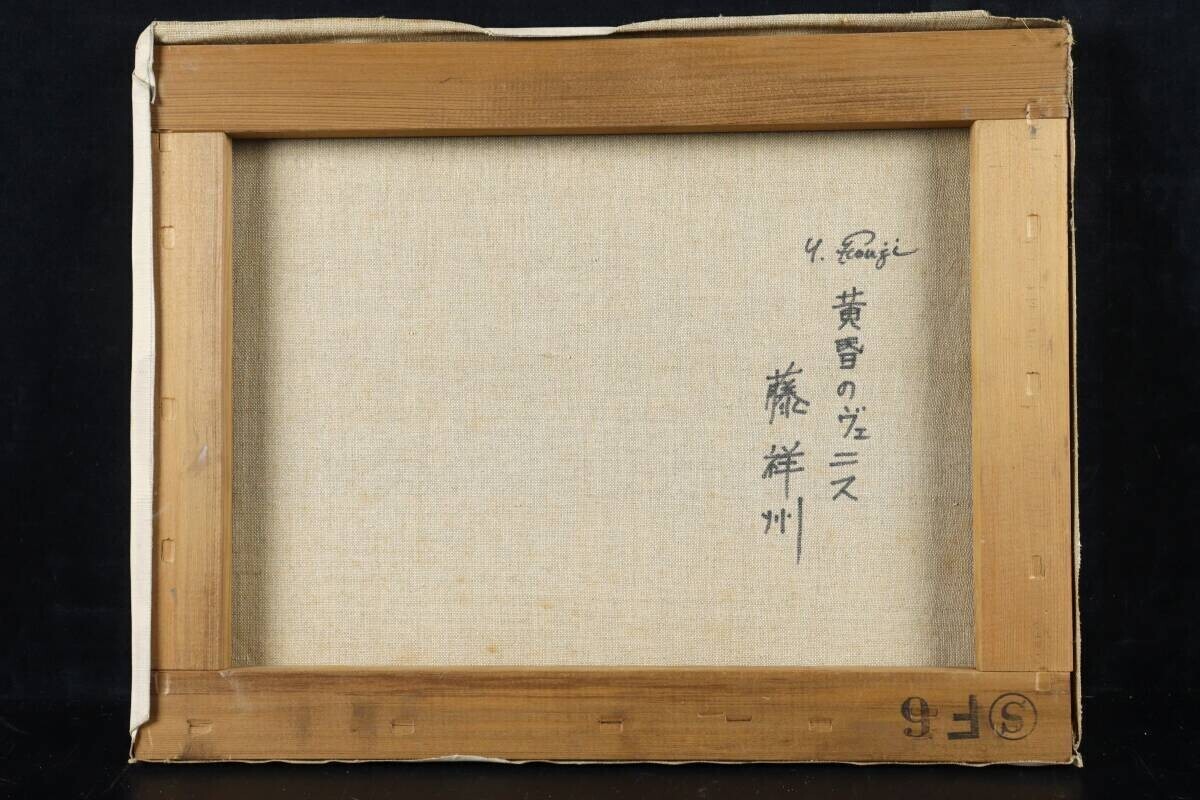 Y. Fouji
黄昏のヴェニス
藤祥州
Ⓢ F6